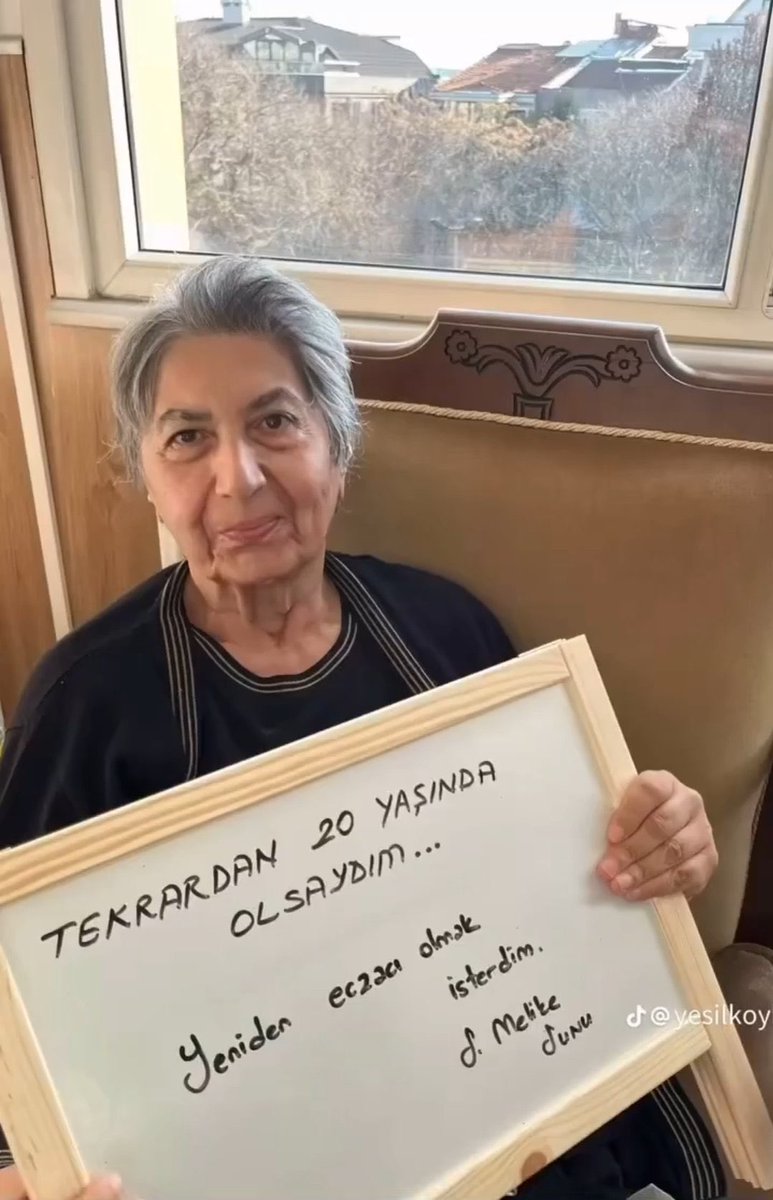 TEKRARDAN 20 YAŞINDA
OLSAYDIM...
Yeniden eczacı olmak
isterdim.
S. Melike
Sunu
@yesilkoy